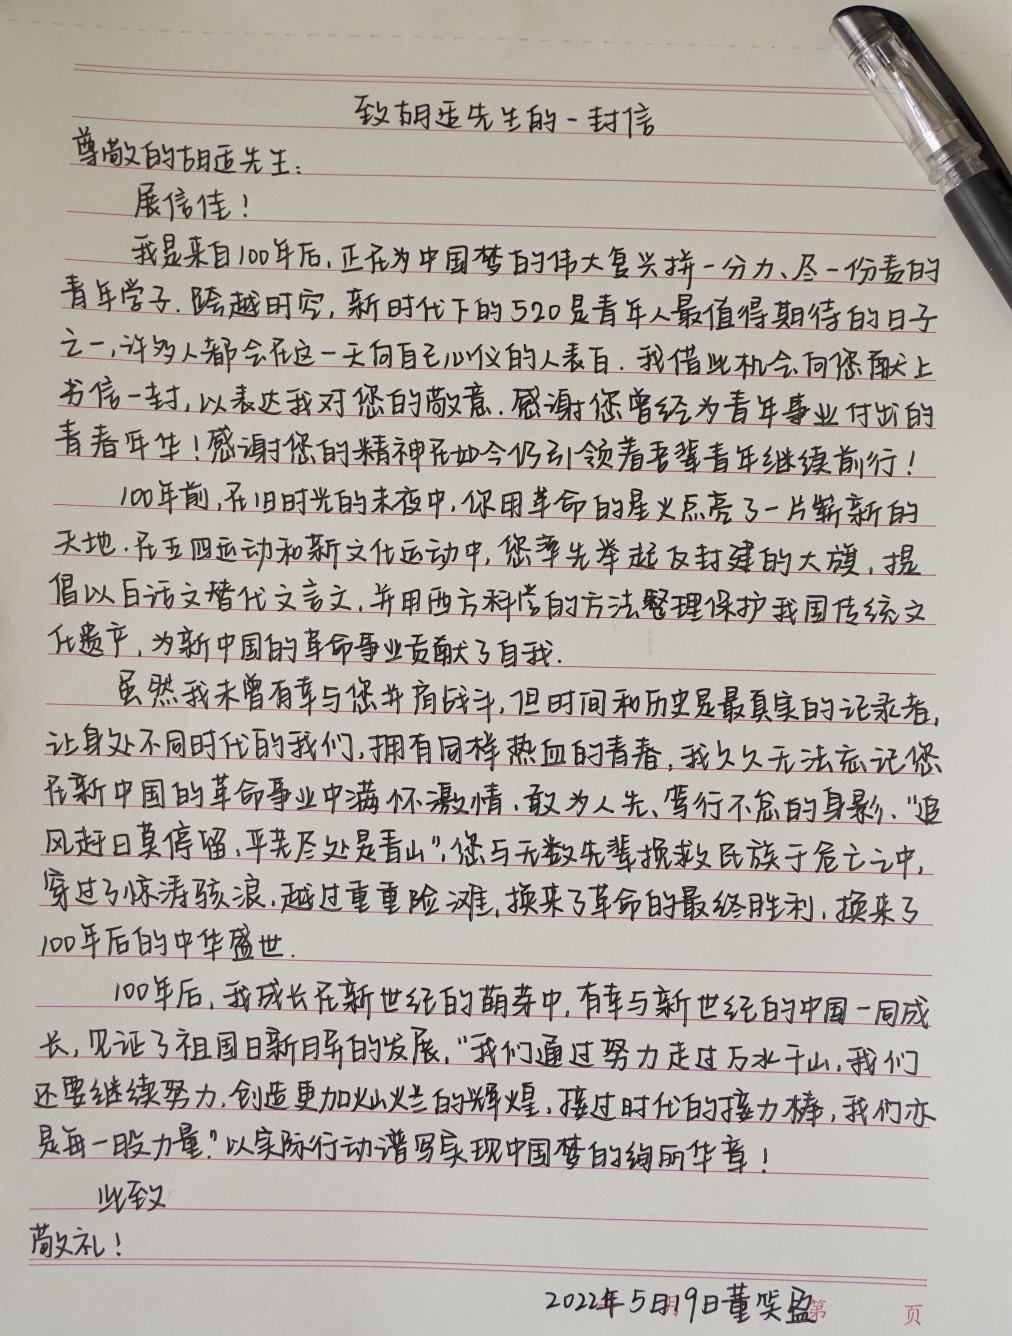 致胡适先生的一封信
尊敬的胡适先生:
展信佳!
我是来自100年后,正在为中国梦的伟大复兴拼一分力、尽一份责的
青年学子.跨越时空,新时代下的520是青年人最值得期待的日子
之一,许多人都会在这一天向自己心仪的人表白.我借此机会向您献上
书信一封,以表达我对您的敬意.感谢您曾经为青年事业付出的
青春年华!感谢您的精神在如今仍引领着吾辈青年继续前行!
100年前,在旧时光的未夜中,你用革命的星火点亮了一片崭新的
天地.在五四运动和新文化运动中,您率先举起反封建的大旗,提
倡以白话文替代文言文,并用西方科学的方法整理保护我国传统文
化遗产,为新中国的革命事业贡献了自我.
虽然我未曾有幸与您并肩战斗,但时间和历史是最真实的记录者,
让身处不同时代的我们,拥有同样热血的青春,我久久无法忘记您
在新中国的革命事业中满怀激情,敢为人先、笃行不怠的身影."追
风赶日莫停留,平芜尽处是青山",您与无数先辈挽救民族于危亡之中,
穿过了惊涛骇浪,越过重重险滩,换来了革命的最终胜利,换来了
100年后的中华盛世.
100年后,我成长在新世纪的萌芽中,有幸与新世纪的中国一同成
长,见证了祖国日新月异的发展,"我们通过努力走过万水千山,我们
还要继续努力,创造更加灿烂的辉煌,接过时代的接力棒,我们亦
是每一股力量."以实际行动谱写实现中国梦的绚丽华章!
此致
敬礼!
2022年5月19日董笑盈
第 页